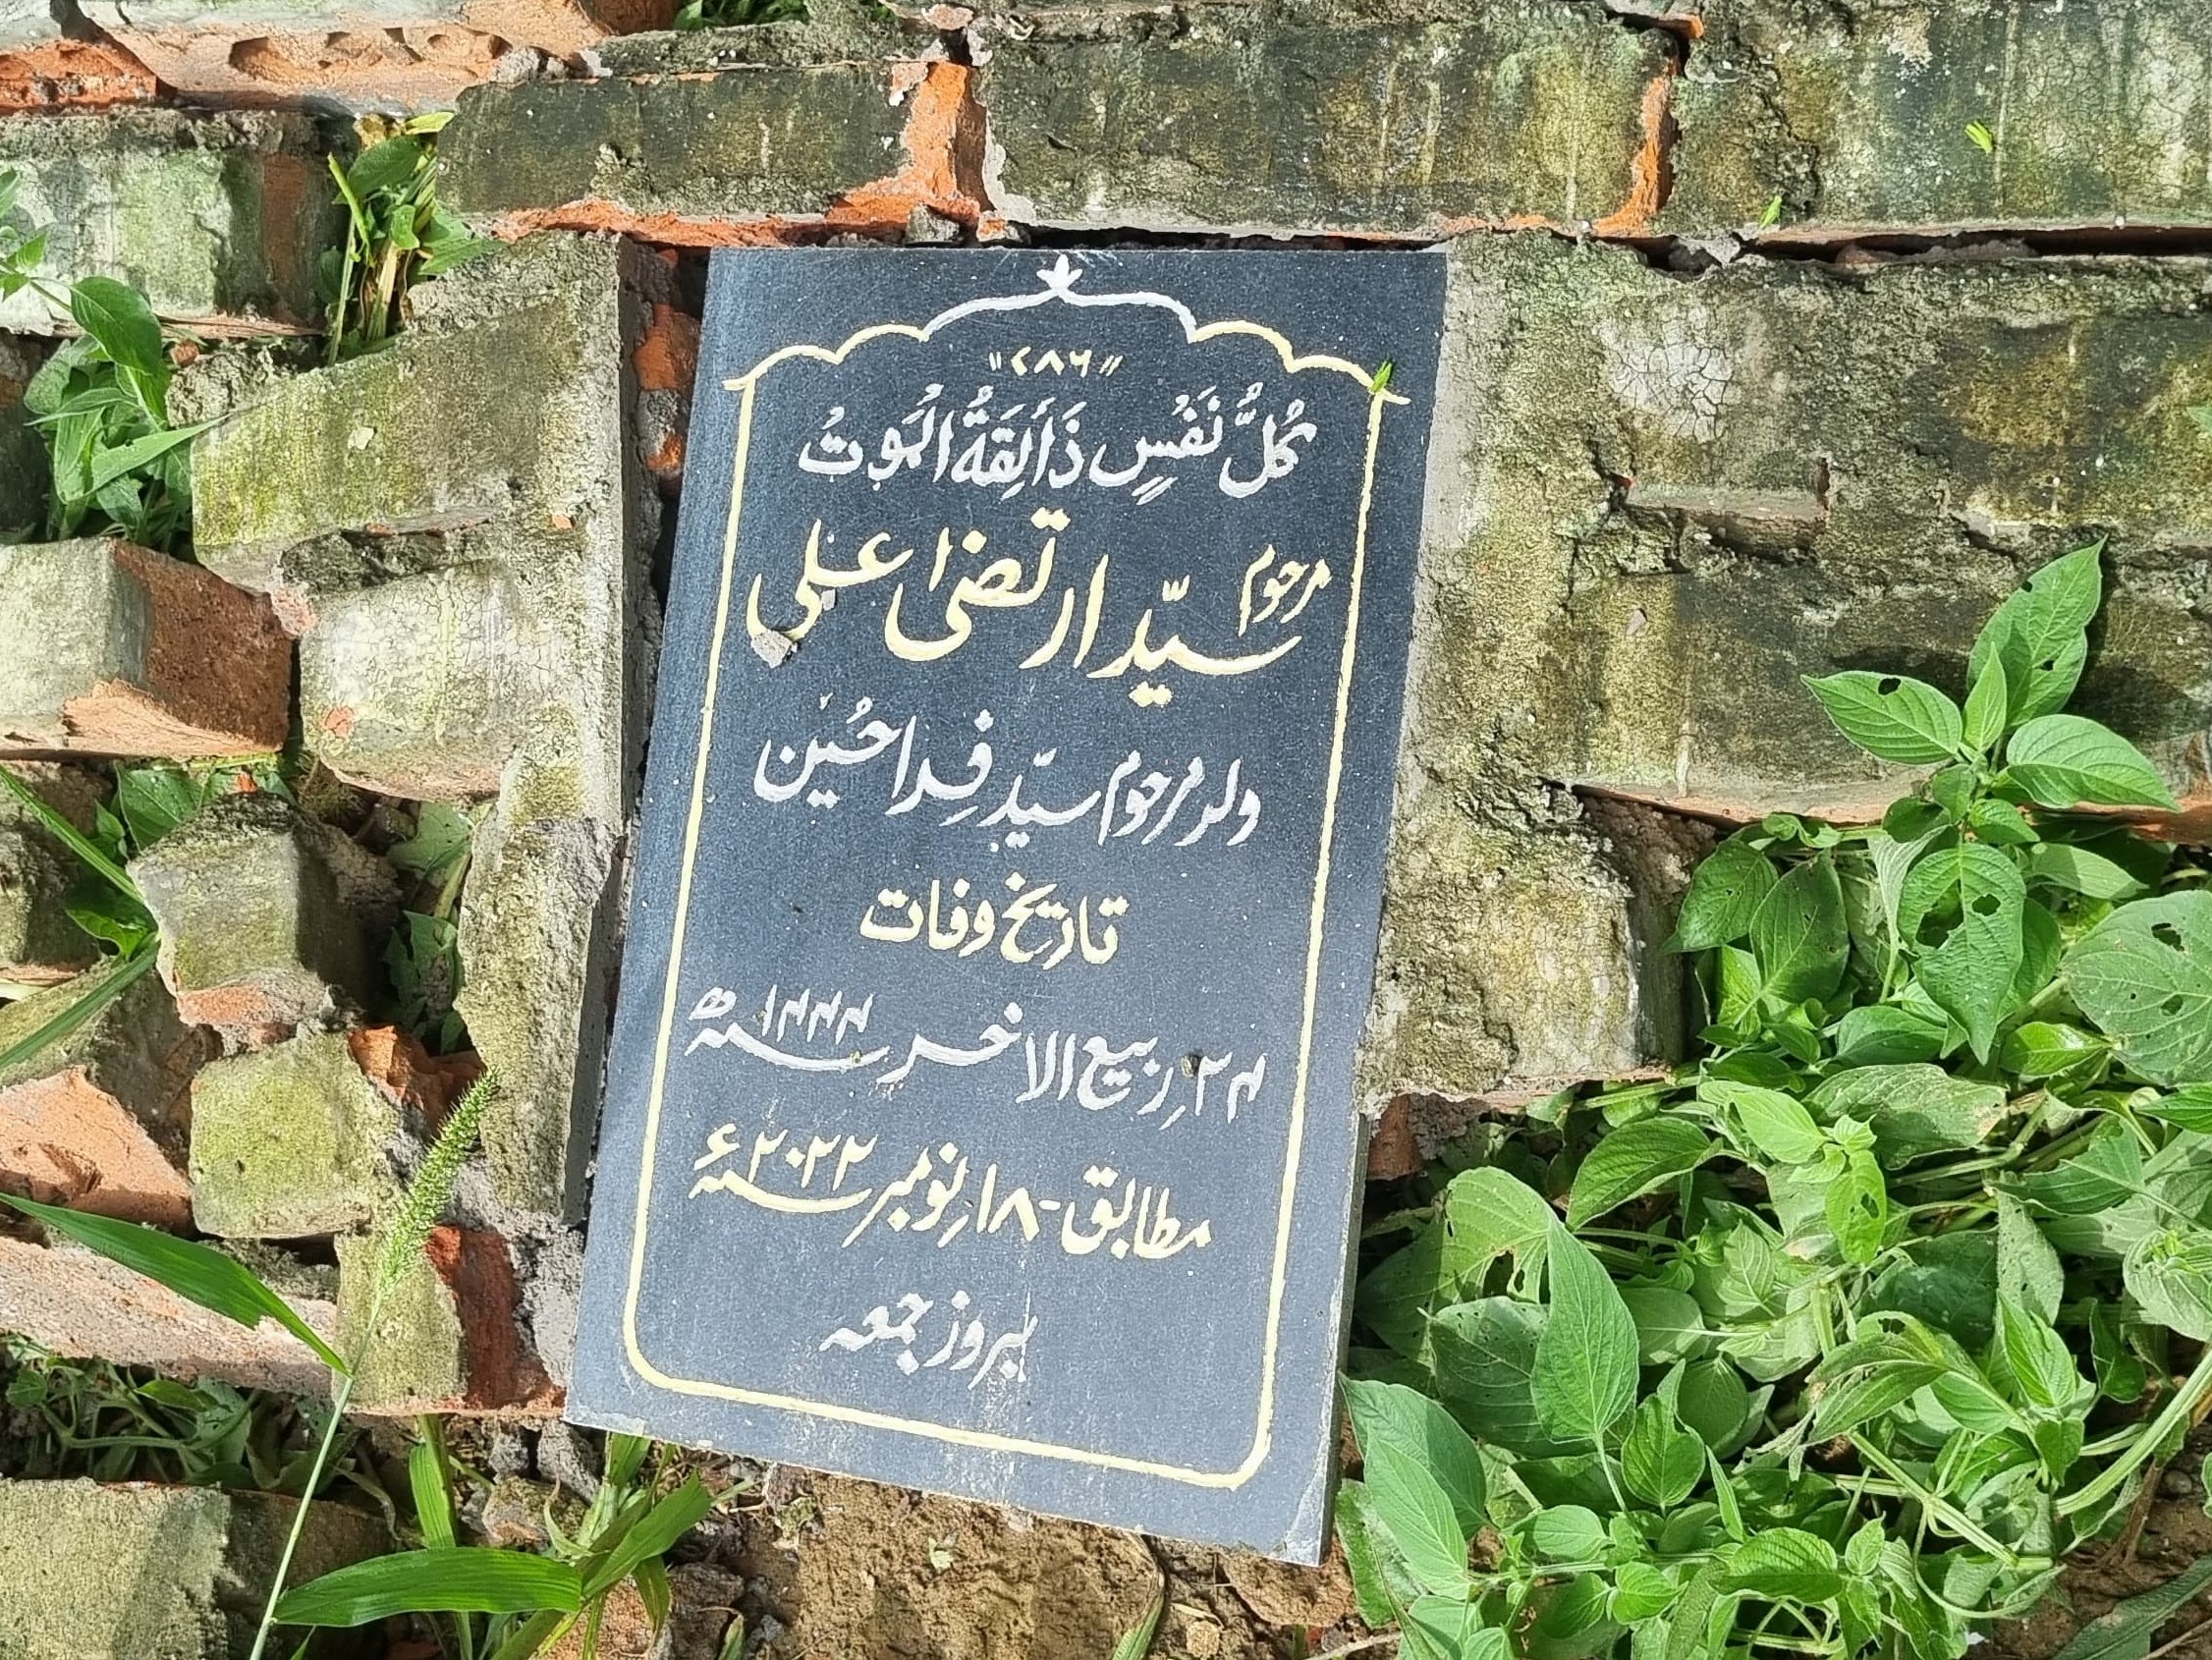 "۷۸۶"
كُلُّ نَفْسٍ ذَائِقَةُ الْمَوتُ
مرحوم سیّد ارتضیٰ علی
ولد مرحوم سیّد فِدا حُسین
تاریخ وفات
۲۳؍ ربیع الاخر ۱۴۴۴ھ
مطابق - ۱۸؍ نومبر ۲۰۲۲ء
بروز جمعہ